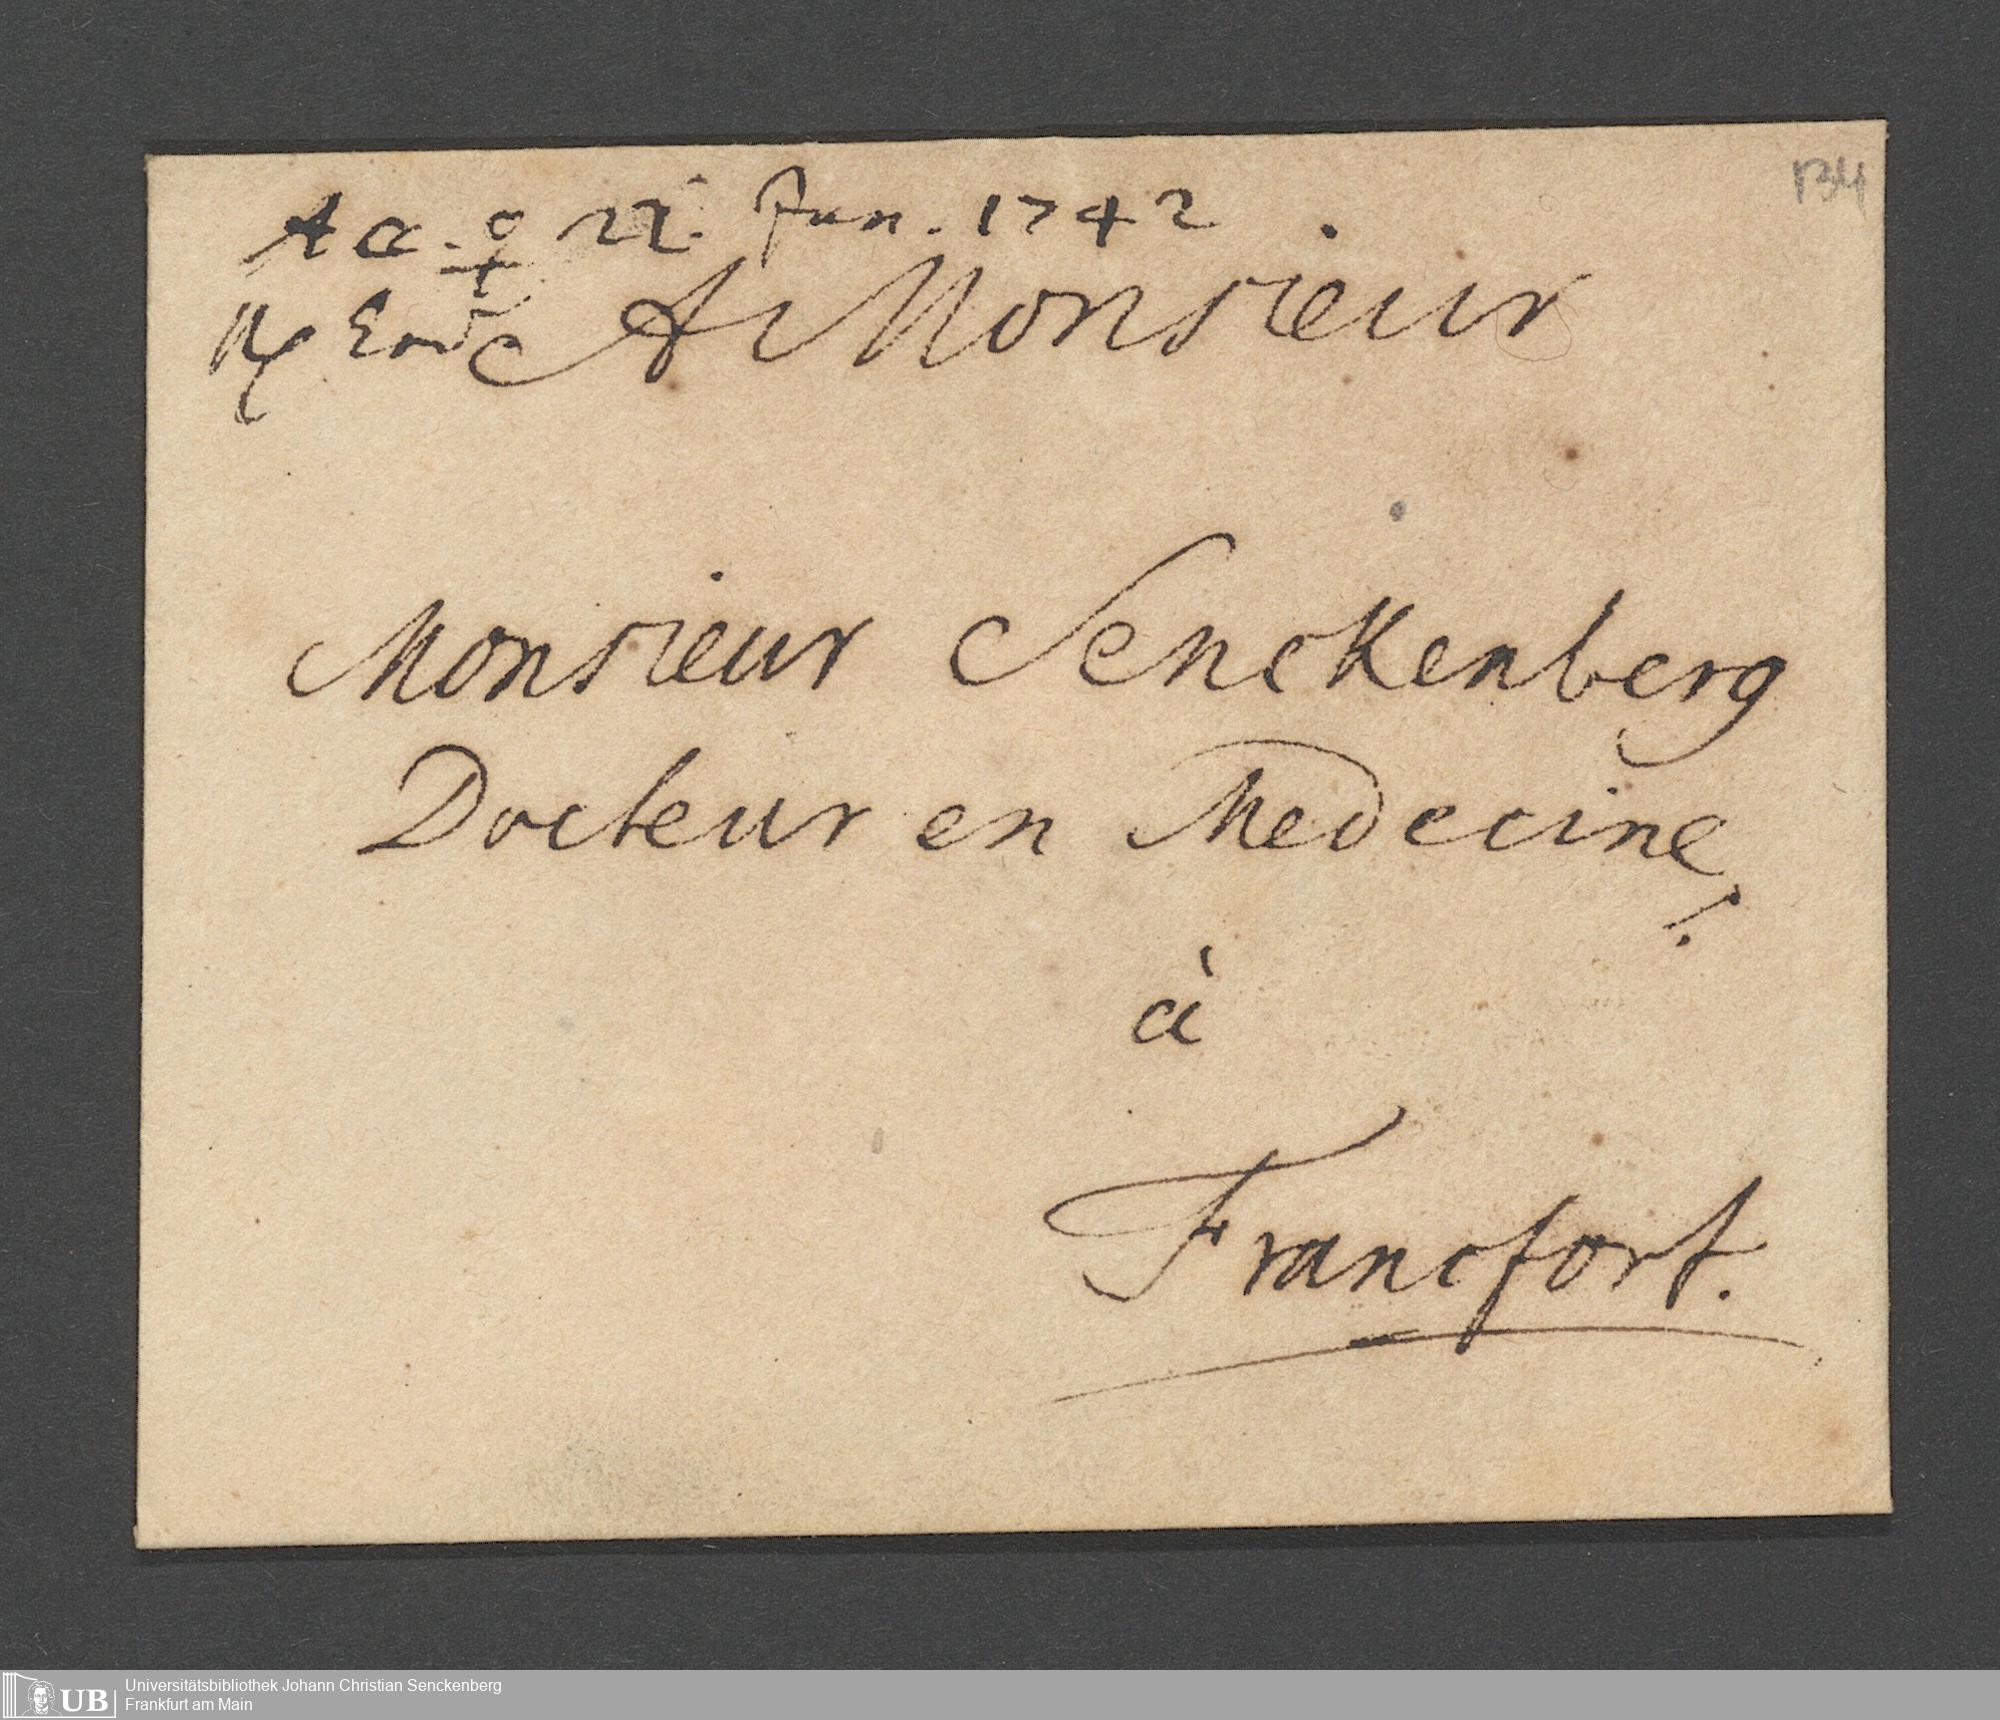 134
Acc. ♀ 22. Jun. 1742
A Monsieur
Monsieur Senckenberg
Docteur en Medecine
à
Francfort.
UB
Universitätsbibliothek Johann Christian Senckenberg
Frankfurt am Main